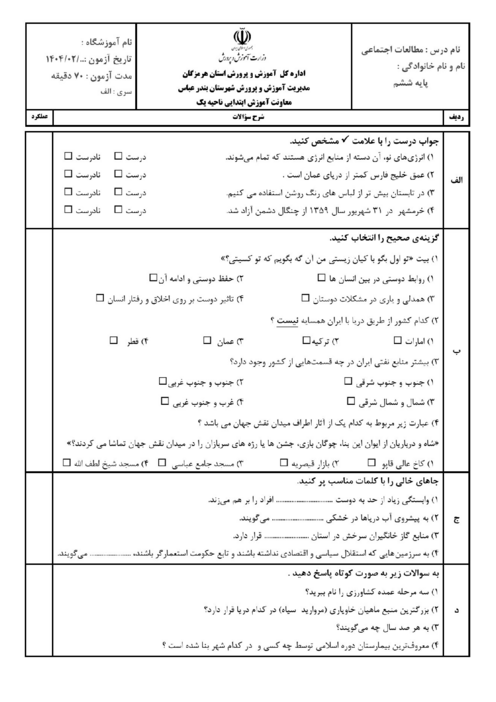 نام درس : مطالعات اجتماعی
نام و نام خانوادگی :
پایه ششم
جمهوری اسلامی ایران
وزارت آموزش و پرورش
اداره کل آموزش و پرورش استان هرمزگان
مدیریت آموزش و پرورش شهرستان بندر عباس
معاونت آموزش ابتدایی ناحیه یک
نام آموزشگاه :
تاریخ آزمون :../۱۴۰۴/۰۲
مدت آزمون : ۷۰ دقیقه
سری : الف
ردیف شرح سؤالات عملکرد
الف
جواب درست را با علامت ✓ مشخص کنید.
۱) انرژی‌های نو، آن دسته از منابع انرژی هستند که تمام می‌شوند. درست ☐ نادرست ☐
۲) عمق خلیج فارس کمتر از دریای عمان است . درست ☐ نادرست ☐
۳) در تابستان بیش تر از لباس های رنگ روشن استفاده می کنیم. درست ☐ نادرست ☐
۴) خرمشهر در ۳۱ شهریور سال ۱۳۵۹ از چنگال دشمن آزاد شد. درست ☐ نادرست ☐
ب
گزینه‌ی صحیح را انتخاب کنید.
۱) بیت «تو اول بگو با کیان زیستی من آن گه بگویم که تو کیستی؟»
۱) روابط دوستی در بین انسان ها ☐ ۲) حفظ دوستی و ادامه آن ☐
۳) همدلی و یاری در مشکلات دوستان ☐ ۴) تاثیر دوست بر روی اخلاق و رفتار انسان ☐
۲) کدام کشور از طریق دریا با ایران همسایه نیست ؟
۱) امارات ☐ ۲) ترکیه ☐ ۳) عمان ☐ ۴) قطر ☐
۳) بیشتر منابع نفتی ایران در چه قسمت‌هایی از کشور وجود دارد؟
۱) جنوب و جنوب شرقی ☐ ۲) جنوب و جنوب غربی ☐
۳) شمال و شمال شرقی ☐ ۴) غرب و جنوب غربی ☐
۴) عبارت زیر مربوط به کدام یک از آثار اطراف میدان نقش جهان می باشد ؟
«شاه و درباریان از ایوان این بنا، چوگان بازی، جشن ها یا رژه های سربازان را در میدان نقش جهان تماشا می کردند؟»
۱) کاخ عالی قاپو ☐ ۲) بازار قیصریه ☐ ۳) مسجد جامع عباسی ☐ ۴) مسجد شیخ لطف الله ☐
ج
جاهای خالی را با کلمات مناسب پر کنید.
۱) وابستگی زیاد از حد به دوست .................... افراد را بر هم می‌زند.
۲) به پیشروی آب دریاها در خشکی .................... می‌گویند.
۳) منابع گاز خانگیران سرخس در استان .................... قرار دارد.
۴) به سرزمین هایی که استقلال سیاسی و اقتصادی نداشته باشند و تابع حکومت استعمارگر باشند، .................... می‌گویند.
د
به سوالات زیر به صورت کوتاه پاسخ دهید .
۱) سه مرحله عمده کشاورزی را نام ببرید؟
۲) بزرگترین منبع ماهیان خاویاری (مروارید سیاه) در کدام دریا قرار دارد؟
۳) به هر صد سال چه می‌گویند؟
۴) معروف‌ترین بیمارستان دوره اسلامی توسط چه کسی و در کدام شهر بنا شده است ؟